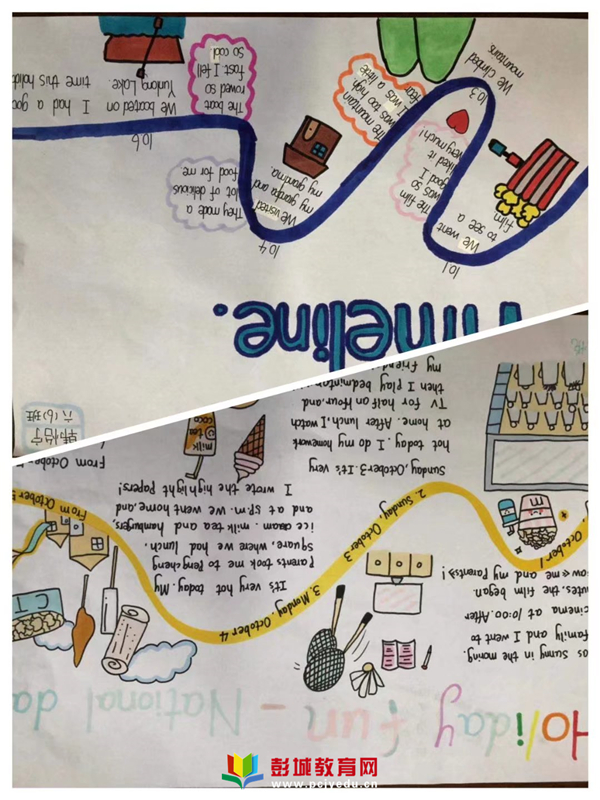 Timeline.
10.1
We went
to see a
film
The film
was so
good I
liked it
very much!
10.3
We climbed
mountains
The mountain
was too high
I was a little
fear
10.4
We visited
my grandpa and
my grandma.
They made a
lot of delicious
food for me
10.6
We boated on
Yunlong Lake
The boat
rowed so
fast I felt
so cool
I had a
time this
Holiday fun - National da
Sunny in the moring.
family and I went to
cinema at 10:00. After
the film began.
me and my Parents》!
October 1
2. Sunday, October 3
Sunday, October 3 It's very
hot today. I do my homework
at home. After lunch, I watch
TV for half an Hour, and
then I play
my
3. Monday, October 4
It's very hot today. My
parents took me to Pengcheng
Square, where we had lunch,
ice cream, milk tea and hamburgers,
and at 5p.m. we went home, and
I wrote the highlight Papers!
milk
tea
coco
From October 5
From October
六(6)班
彭城教育网
www.pcjyedu.cn